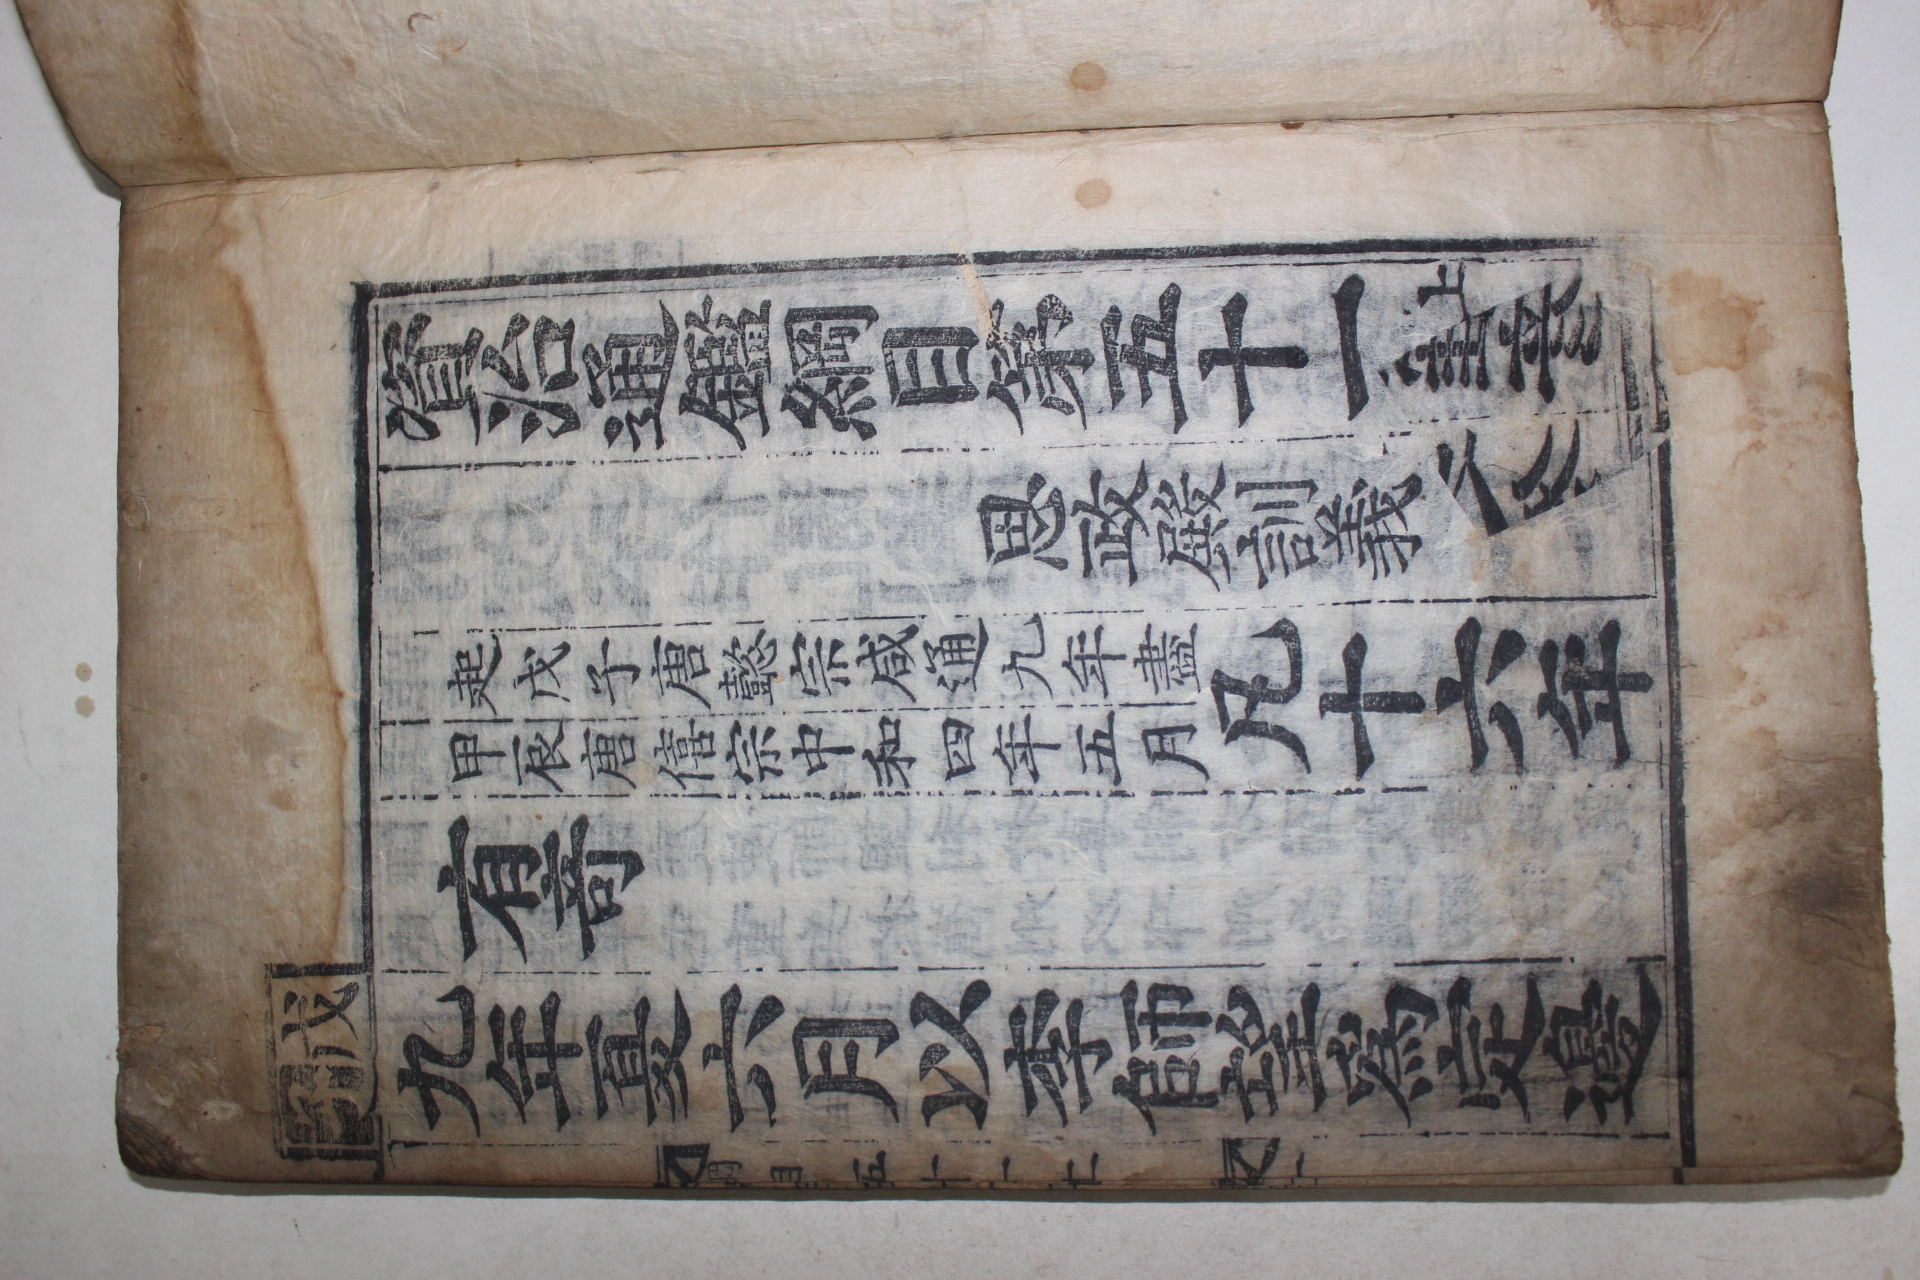 資治通鑑綱目第五十一上
思政殿訓義
起戊子唐懿宗咸通九年盡
甲辰唐僖宗中和四年五月
凡十六年
有奇
戊子
九年夏六月以李師望爲定邊
綱目五十一上